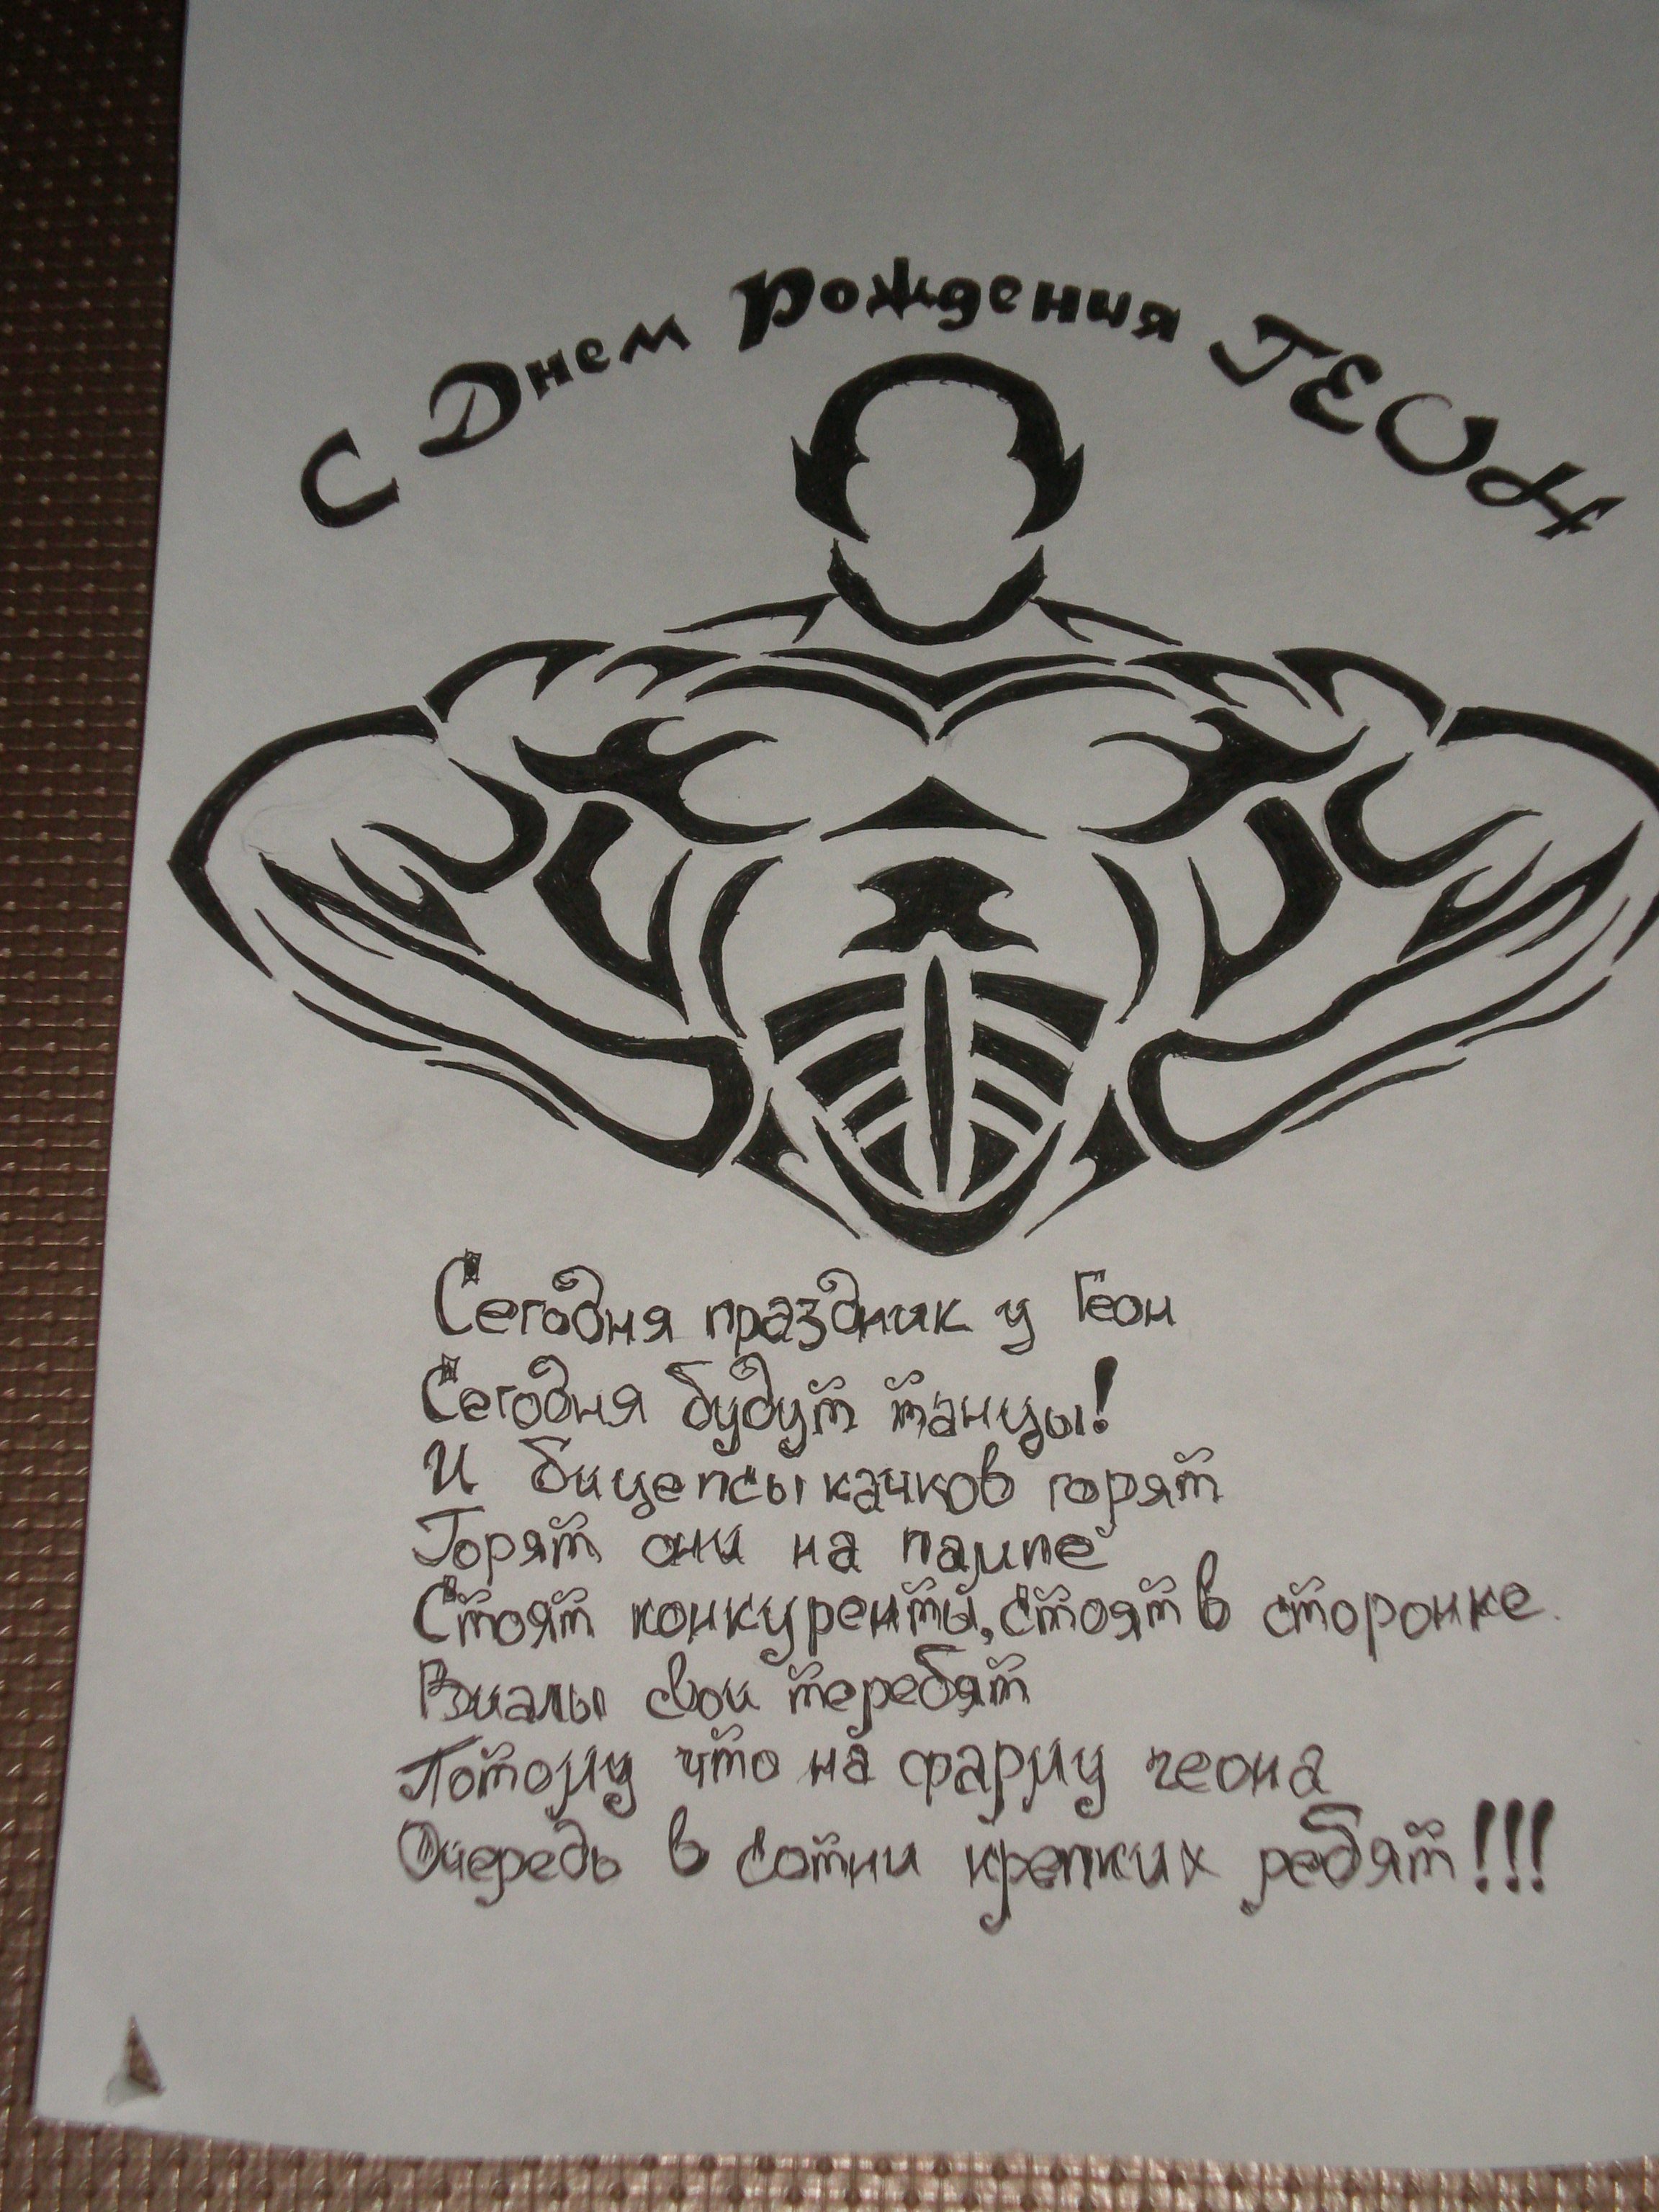 С Днем Рождения ГЕОН
Сегодня праздник у Геон
Сегодня будут танцы!
И бицепсы качков горят
Горят они на пампе
Стоят конкуренты, стоят в сторонке.
Виалы свои теребят
Потому что на фарму геона
Очередь в сотни крепких ребят!!!